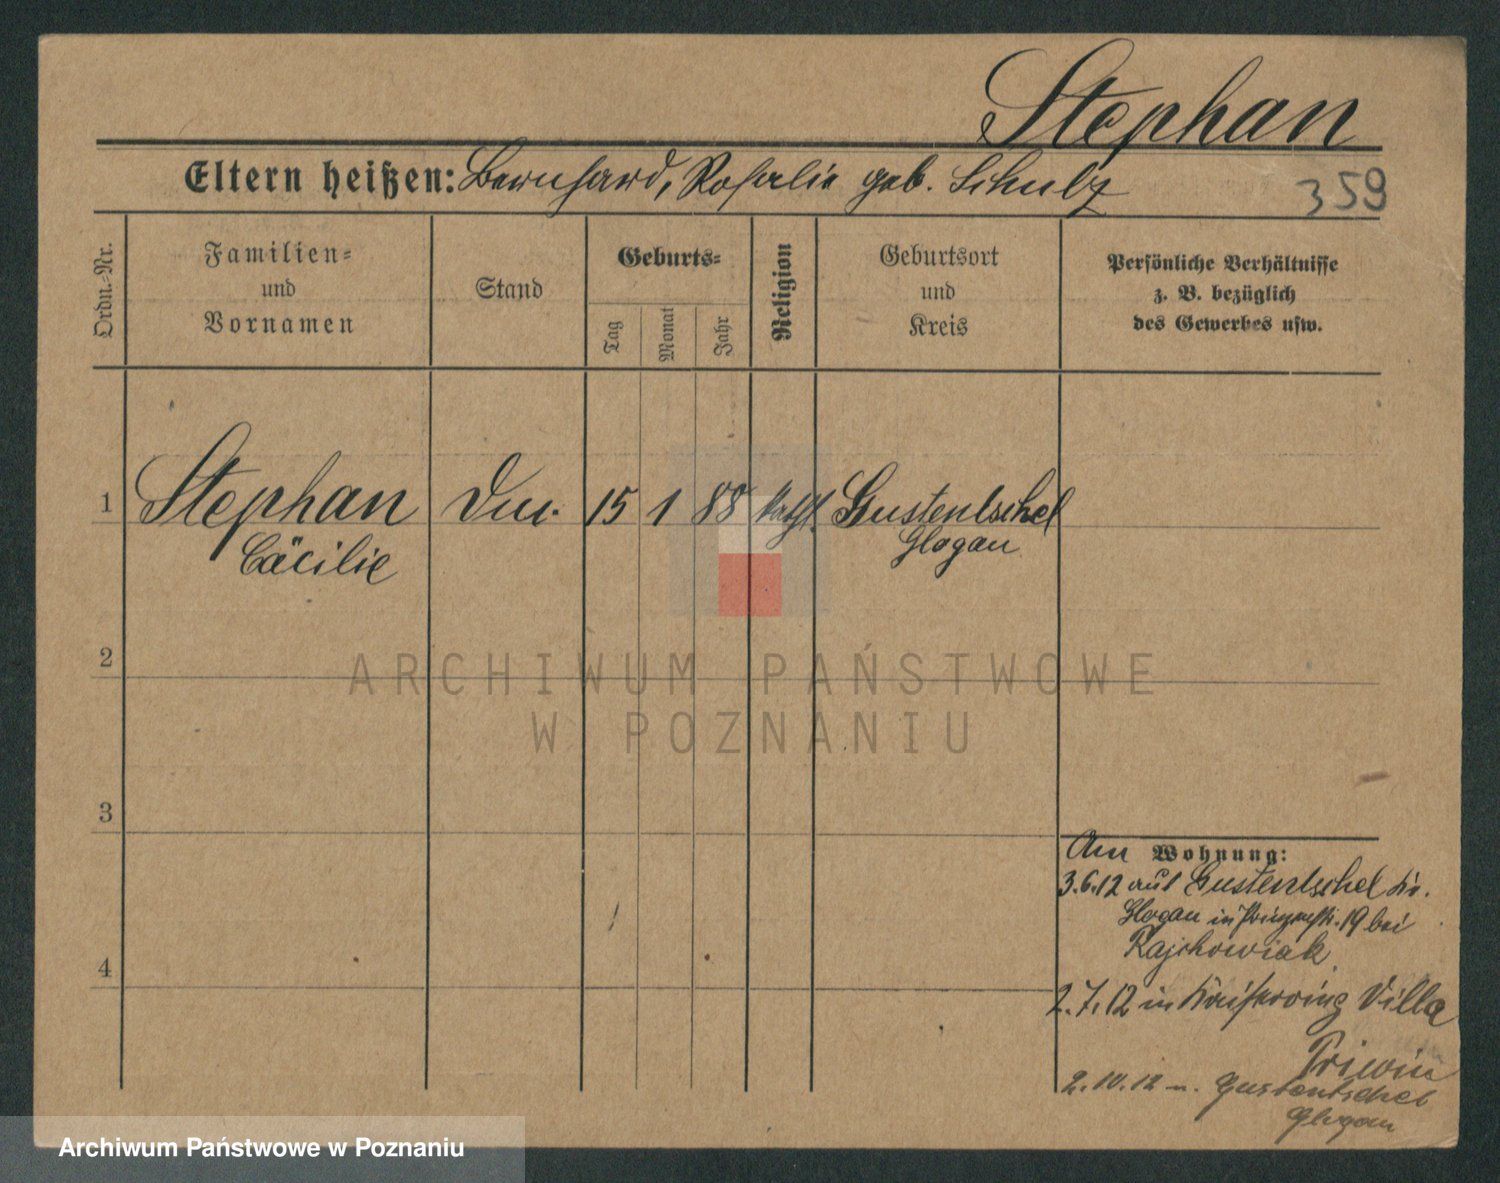 Stephan
Eltern heißen: Bernhard, Rosalie geb. Schulz
359
Ordn.-Nr.
Familien-
und
Vornamen
Stand
Geburts-
Tag
Monat
Jahr
Religion
Geburtsort
und
Kreis
Persönliche Verhältnisse
z. B. bezüglich
des Gewerbes usw.
1 Stephan 15 1 88 kath. Gustentschel
Cäcilie Glogau
2
3
4
Am Wohnung:
3.6.12 aus Gustentschel Kr.
Glogau in 19 bei
Rajchowiak
2.7.12 in Kaiserring Villa
Priwin
2.10.12 n. Gustentschel
Glogau
ARCHIWUM PAŃSTWOWE
W POZNANIU
Archiwum Państwowe w Poznaniu